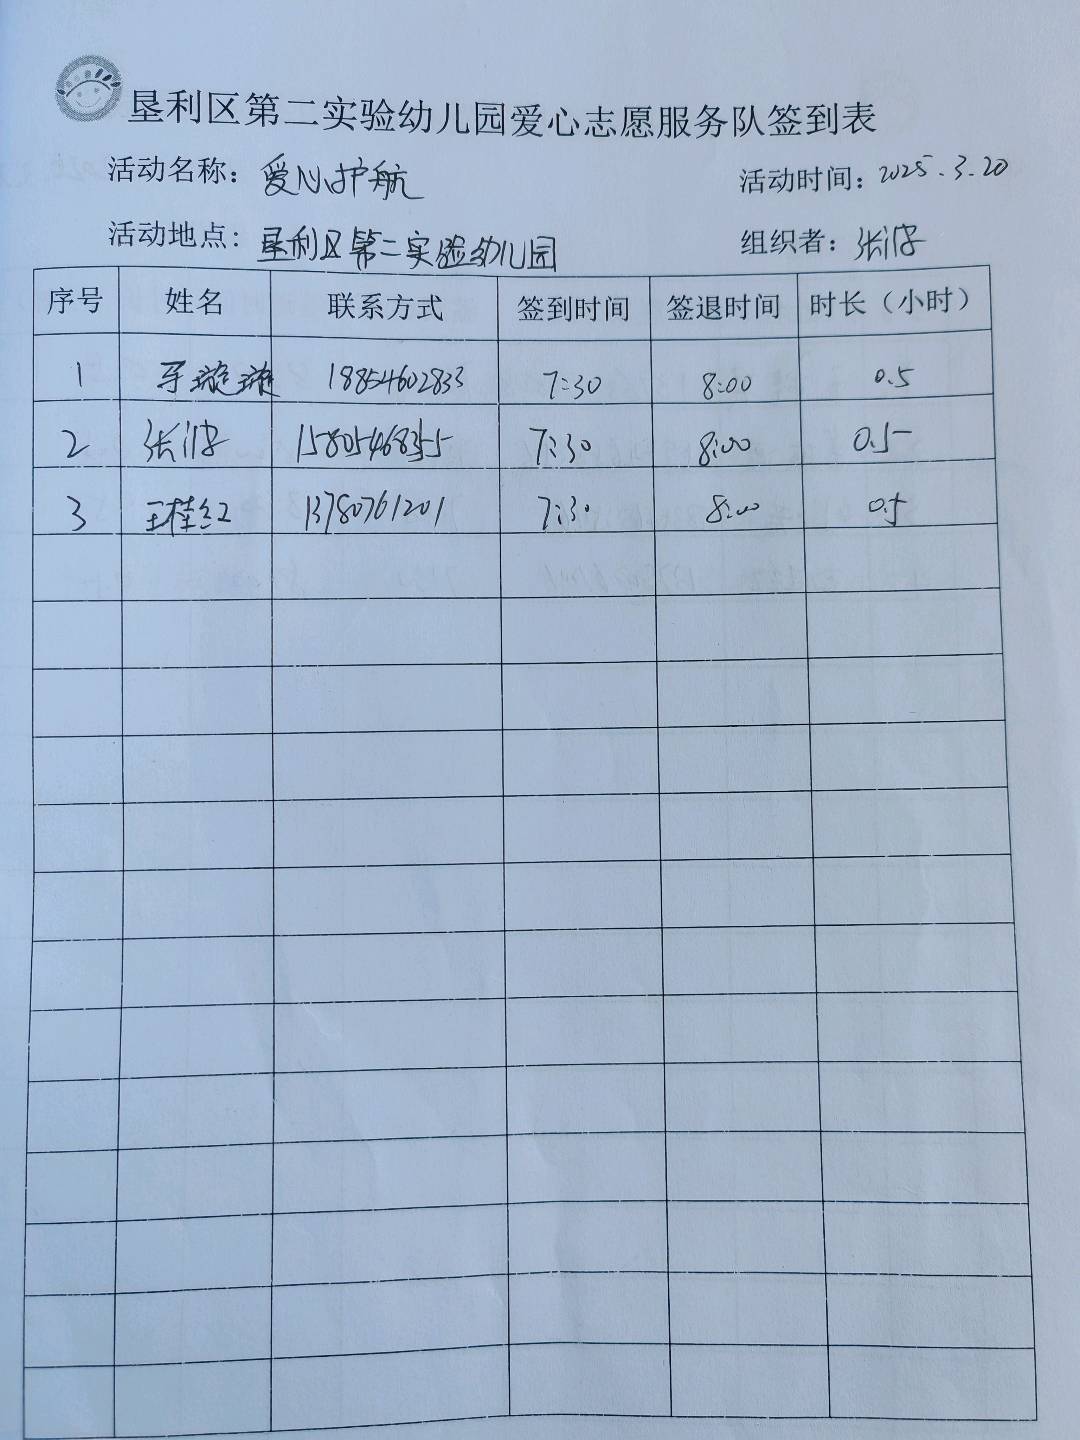 垦利区第二实验幼儿园爱心志愿服务队签到表
活动名称：爱心护航 活动时间：2025.3.20
活动地点：垦利区第二实验幼儿园 组织者：张
序号 姓名 联系方式 签到时间 签退时间 时长（小时）
1 璇璇 18854602833 7:30 8:00 0.5
2 张 15805468355 7:30 8:00 0.5
3 王桂红 13780761201 7:30 8:00 0.5